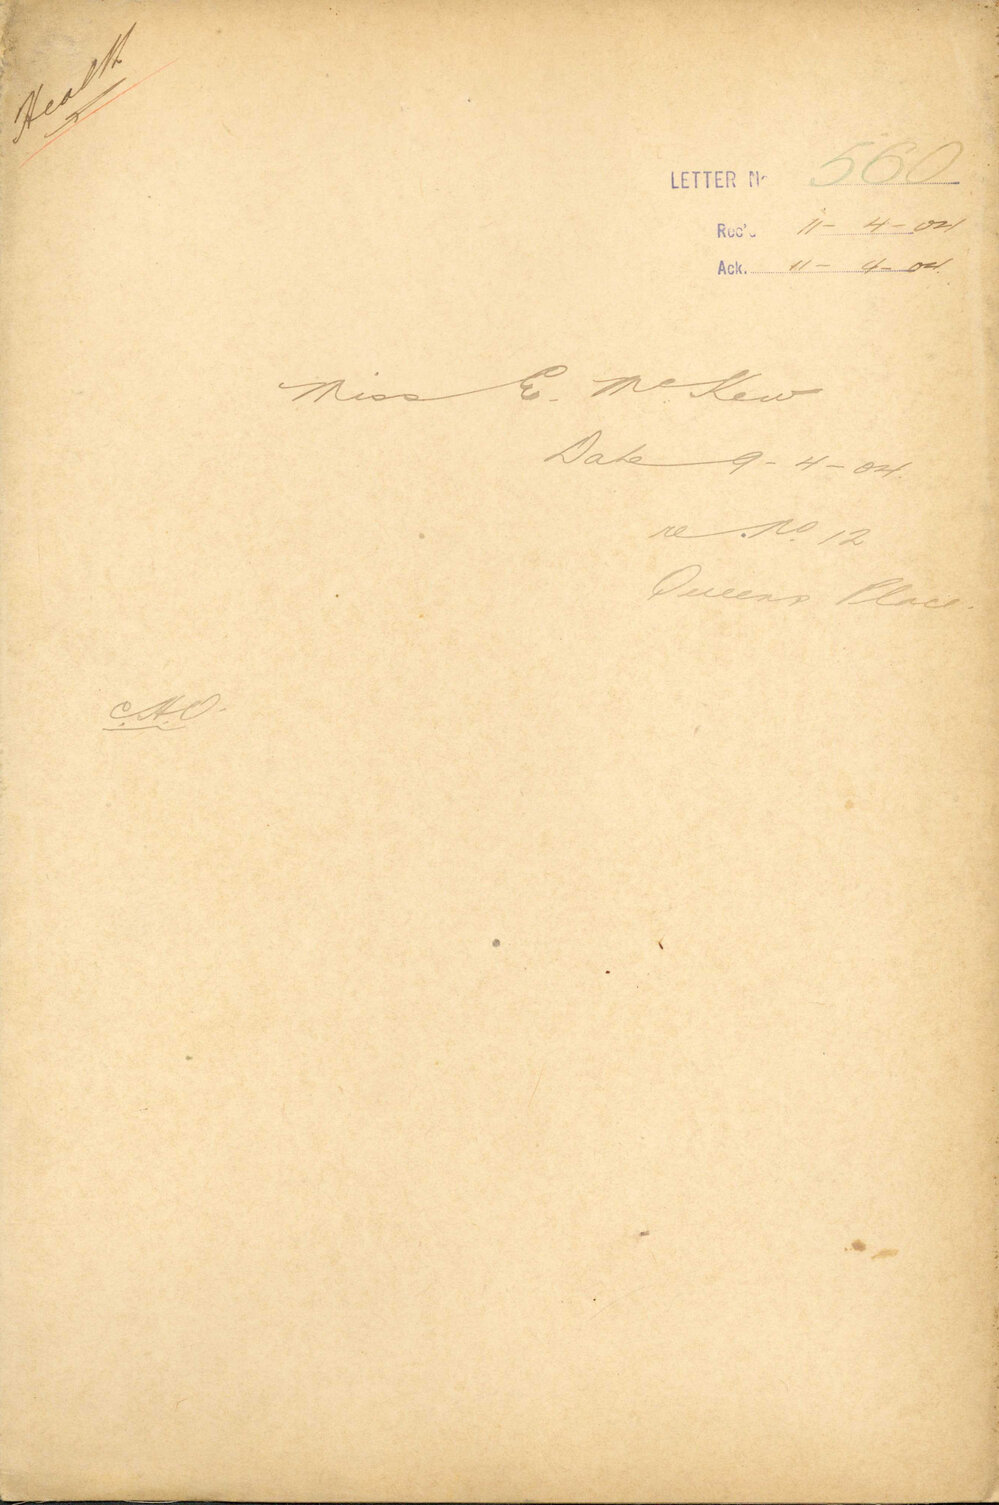 Health
LETTER No 560
Rec'd 11-4-04
Ack. 11-4-04.
Miss E. McKew
Date 9-4-04.
re. No. 12
Queens Place.
C.H.O.